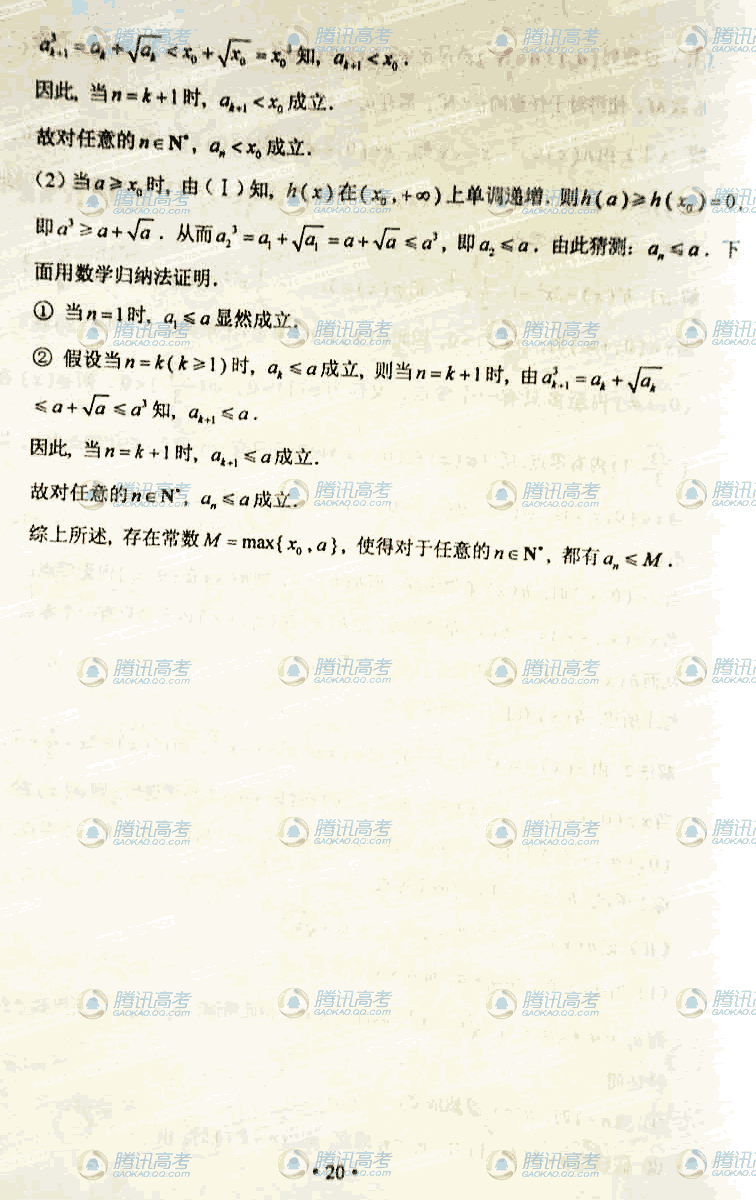 a³ₖ₊₁ = aₖ + √aₖ < x₀ + √x₀ = x₀³ 知, aₖ₊₁ < x₀.
因此, 当 n = k + 1 时, aₖ₊₁ < x₀ 成立.
故对任意的 n ∈ N*, aₙ < x₀ 成立.
(2) 当 a ≥ x₀ 时, 由 (Ⅰ) 知, h(x) 在 (x₀, +∞) 上单调递增. 则 h(a) ≥ h(x₀) = 0,
即 a³ ≥ a + √a. 从而 a₂³ = a₁ + √a₁ = a + √a ≤ a³, 即 a₂ ≤ a. 由此猜测: aₙ ≤ a. 下
面用数学归纳法证明.
① 当 n = 1 时, a₁ ≤ a 显然成立.
② 假设当 n = k (k ≥ 1) 时, aₖ ≤ a 成立, 则当 n = k + 1 时, 由 a³ₖ₊₁ = aₖ + √aₖ
≤ a + √a ≤ a³ 知, aₖ₊₁ ≤ a.
因此, 当 n = k + 1 时, aₖ₊₁ ≤ a 成立.
故对任意的 n ∈ N*, aₙ ≤ a 成立.
综上所述, 存在常数 M = max{x₀, a}, 使得对于任意的 n ∈ N*, 都有 aₙ ≤ M.
腾讯高考
GAOKAO.QQ.COM
· 20 ·